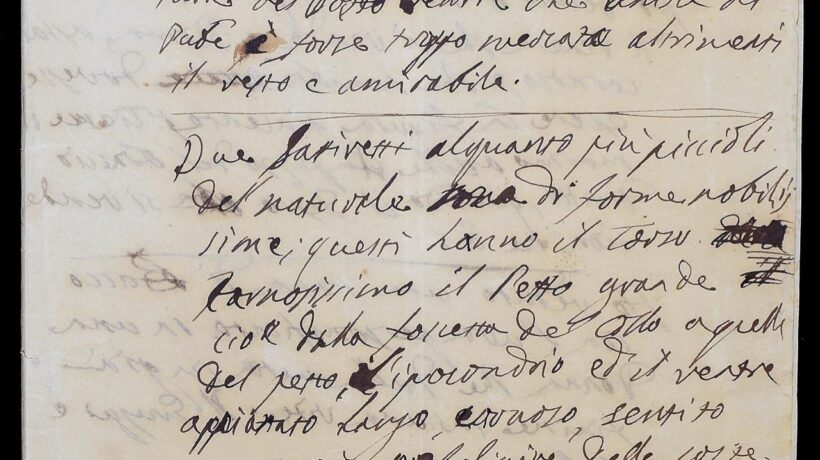 Pube è forse troppo altrimenti
il resto è amirabile.
Due Satiretti alquanto più piccioli
del naturale di forme nobilis
sime; questi hanno il Torso
Carnosissimo il Petto grande
cioè dalla fossetta del Collo a quella
del petto, l'ipocondrio ed il ventre
appianato Largo, carnoso, sentito
delle coste